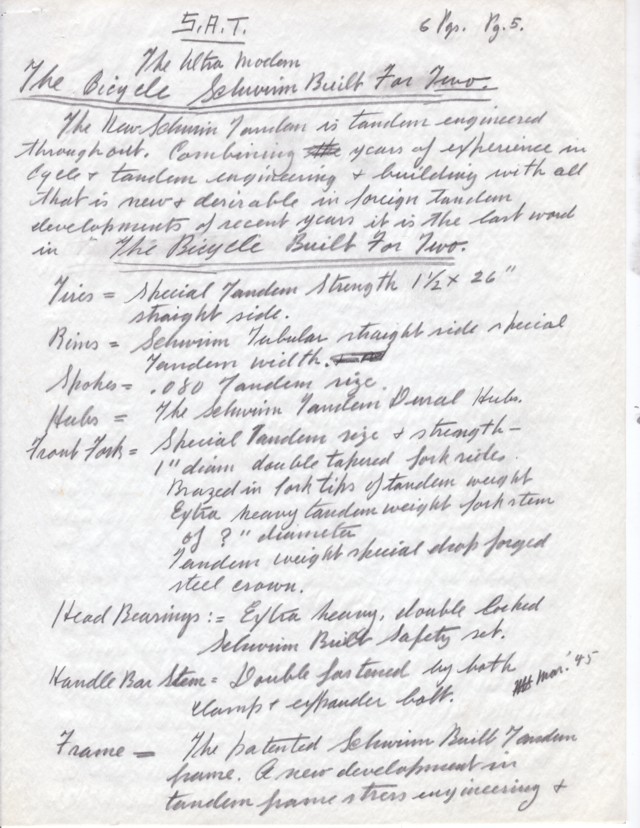 S.A.T. 6 Pgs. Pg. 5.
The Ultra Modern
The Bicycle Schwinn Built For Two.
The New Schwinn Tandem is tandem engineered
throughout. Combining the years of experience in
cycle & tandem engineering & building with all
that is new & desirable in foreign tandem
developments of recent years it is the last word
in "The Bicycle Built For Two.
Tires = Special Tandem Strength 1 1/2 x 26"
straight side.
Rims = Schwinn Tubular straight side special
Tandem width.
Spokes = .080 Tandem size.
Hubs = The Schwinn Tandem Dural Hubs.
Front Fork = Special Tandem size & strength –
1" diam double tapered fork sides.
Brazed in fork tips of tandem weight
Extra heavy tandem weight fork stem
of ? " diameter
Tandem weight special drop forged
steel crown.
Head Bearings := Extra heavy, double locked
Schwinn Built Safety set.
Handle Bar Stem = Double fastened by both
clamp & expander bolt.
Mar. '45
Frame = The patented Schwinn Built Tandem
frame. A new development in
tandem frame stress engineering &